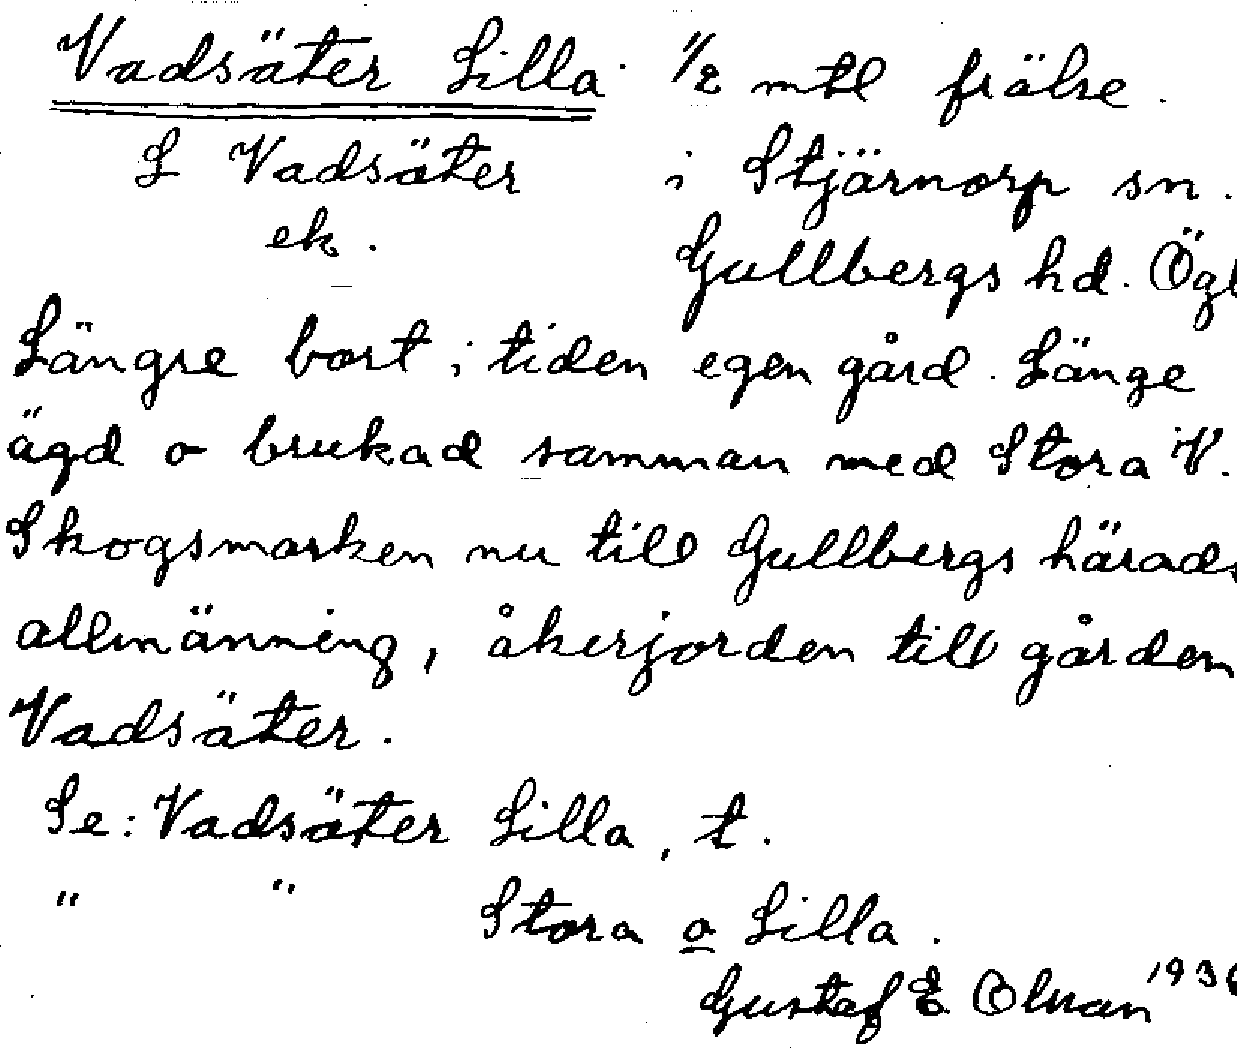 Vadsäter Lilla. 1/2 mtl frälse.
L Vadsäter i Stjärnorp sn.
ek. Gullbergs hd. Ögl
Längre bort i tiden egen gård. Länge
ägd o brukad samman med Stora V.
Skogsmarken nu till Gullbergs härads
allmänning, åkerjorden till gården
Vadsäter.
Se: Vadsäter Lilla, t.
" " Stora o Lilla.
Gustaf E. Olsson